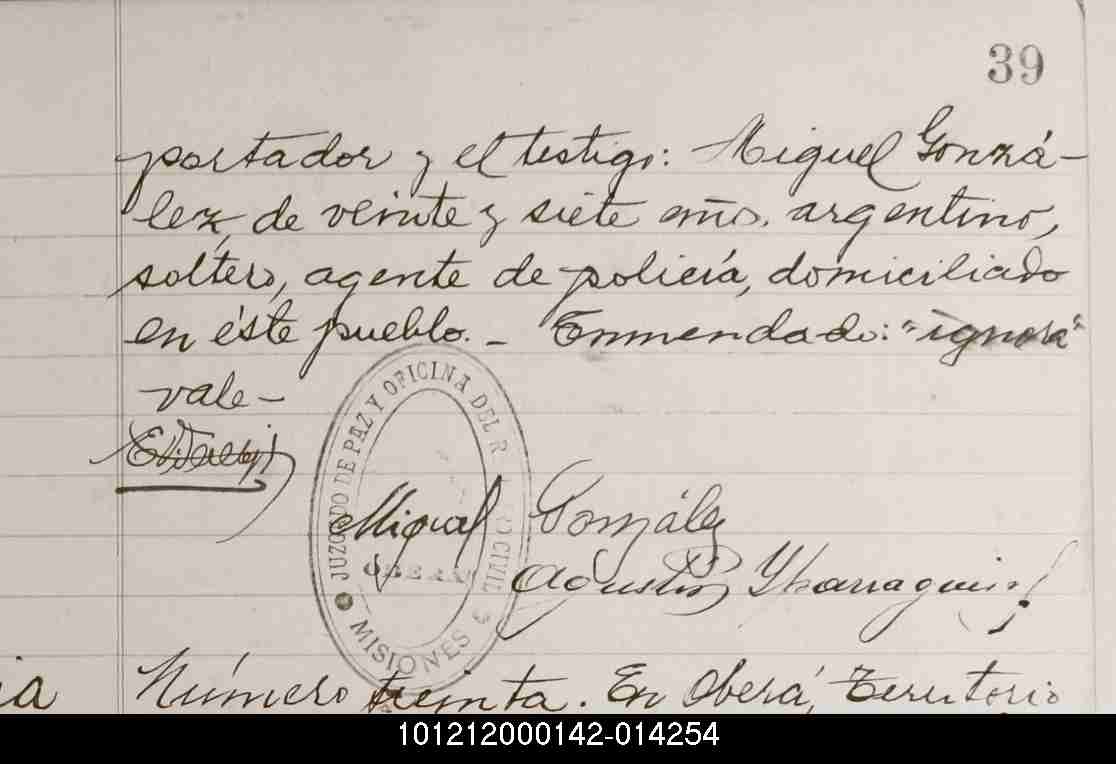 39
portador y el testigo: Miguel Gonzá-
lez, de veinte y siete años. argentino,
soltero, agente de policía, domiciliado
en éste pueblo. - Enmendado: "ignora"
vale -
JUZGADO DE PAZ Y OFICINA DEL R CIVIL
OBERA
MISIONES
Miguel González
Agustin
ia Número treinta. En Oberá, Territorio
101212000142-014254